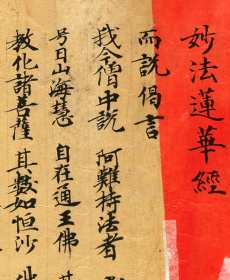 妙法蓮華經
而說偈言
我今僧中說 阿難持法者
号曰山海慧 自在通王佛
教化諸菩薩 其數如恒沙